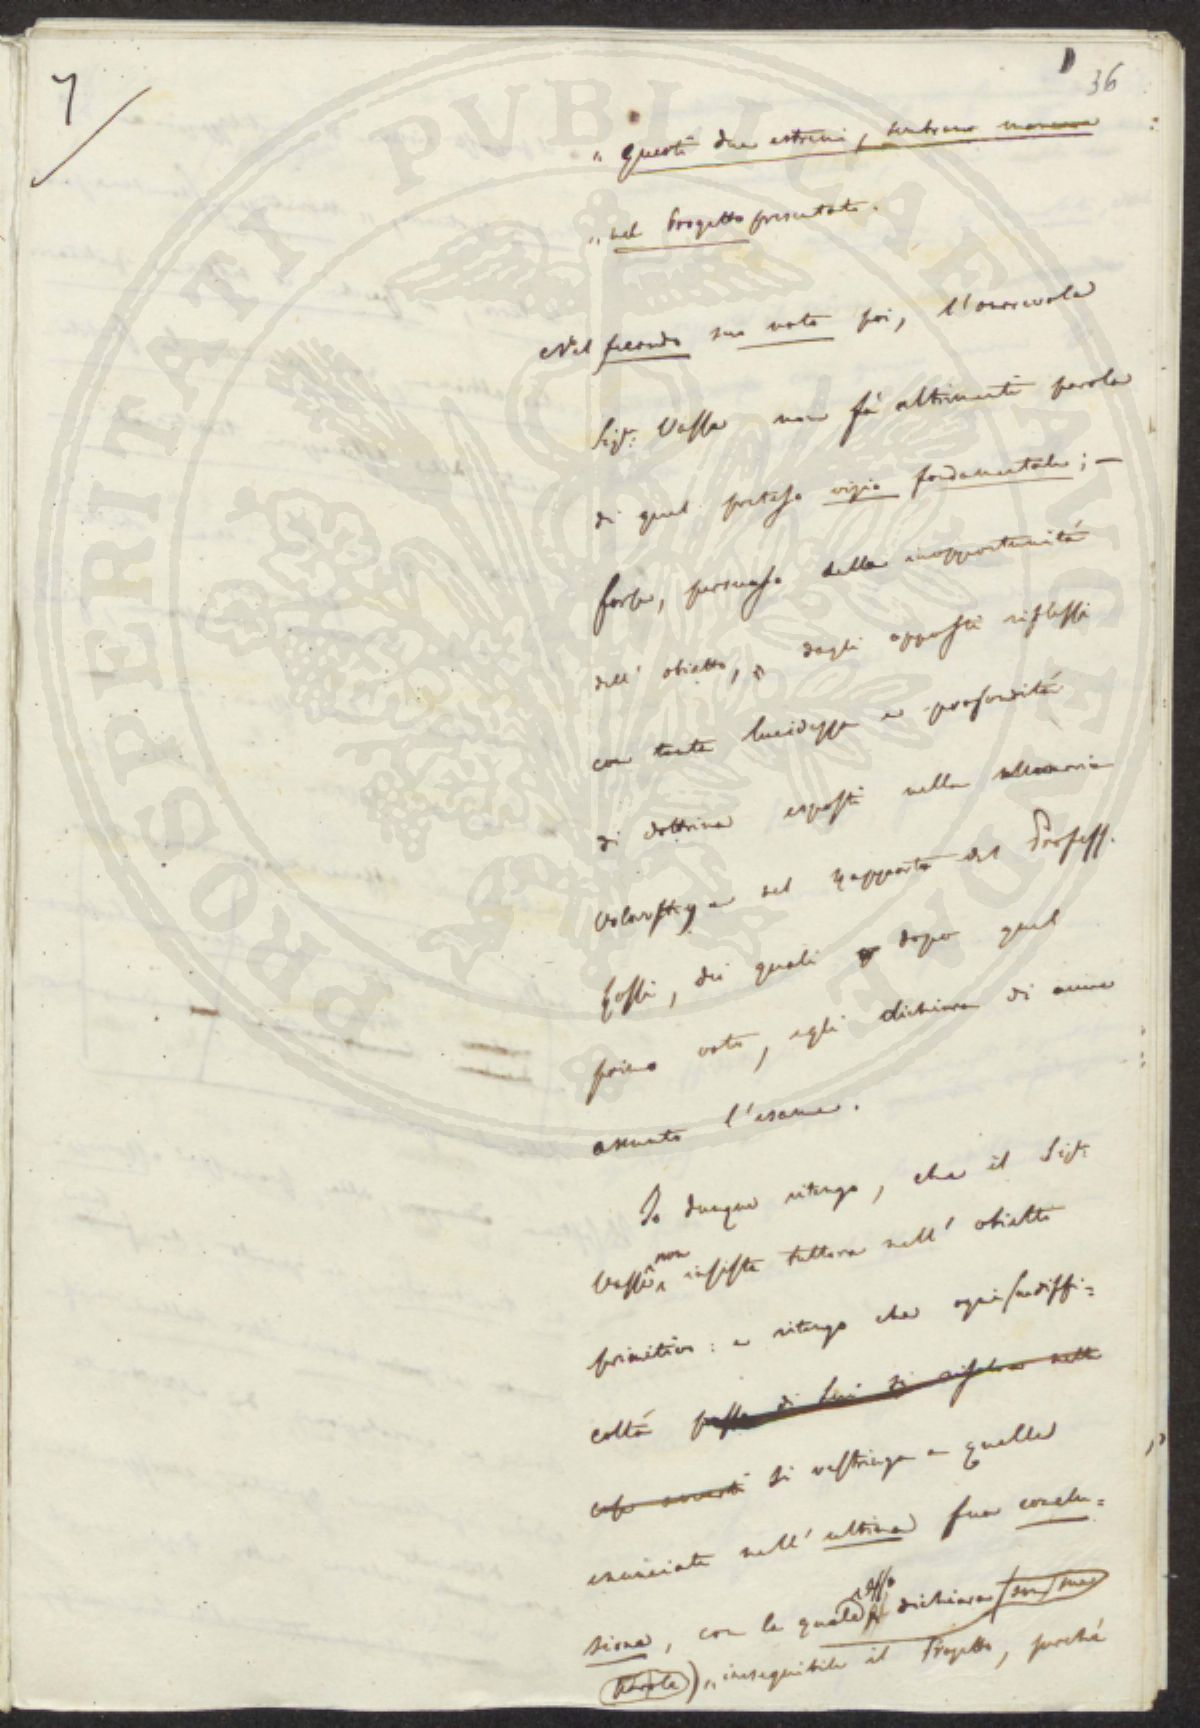 7
36
„ Questi due estremi, sembrano mancare
„ nel Progetto presentato.
Nel secondo suo voto poi, l'onorevole
Sigr: Vasse non fà altrimenti parola
di quel preteso vizio fondamentale; —
forse, persuaso della inopportunità
dell' obietto, dagli opposti riflessi
con tanta lucidezza e profondità
di dottrina esposti nella Memoria
e nel Rapporto del Profess.
Rossi, dei quali dopo quel
primo voto, egli dichiara di avere
assunto l'esame.
Io dunque ritengo, che il Sigr:
Vasse non insista tuttora nell' obietto
primitivo: e ritengo che ogni sua diffi=
coltà passa di Lui si risolva nelle
si restringa a quella
enunciata nell' ultima sua conclu=
sione, con la quale esso dichiara (son sue
Parole) „ ineseguibile il Progetto, perchè
PROSPERITATI PVBLICAE AVGENDAE